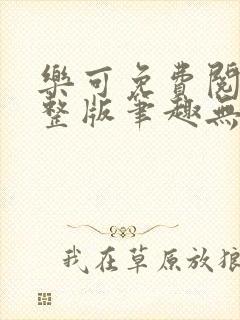 樂可免費閱
整版筆趣無
我在草原放狼